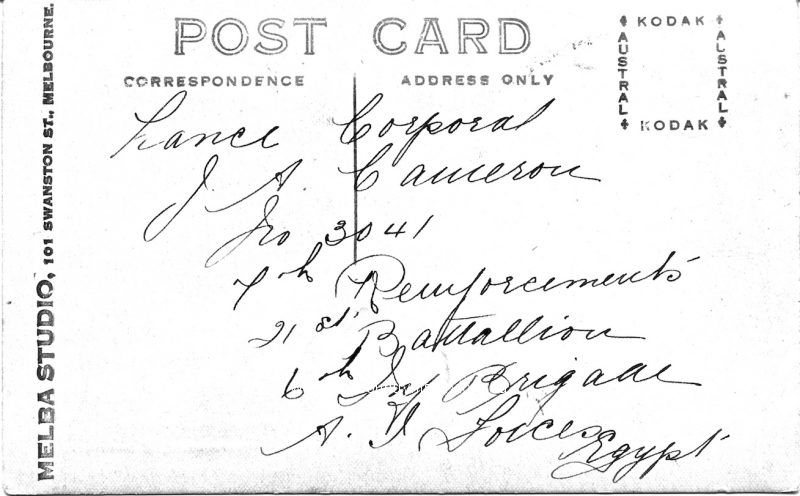 POST CARD
CORRESPONDENCE
ADDRESS ONLY
KODAK
AUSTRAL
AUSTRAL
KODAK
MELBA STUDIO, 101 SWANSTON ST., MELBOURNE.
Lance Corporal
J. A. Cameron
No 3041
7th Reinforcements
21st Battallion
6th Inf Brigade
A. I. Forces Egypt